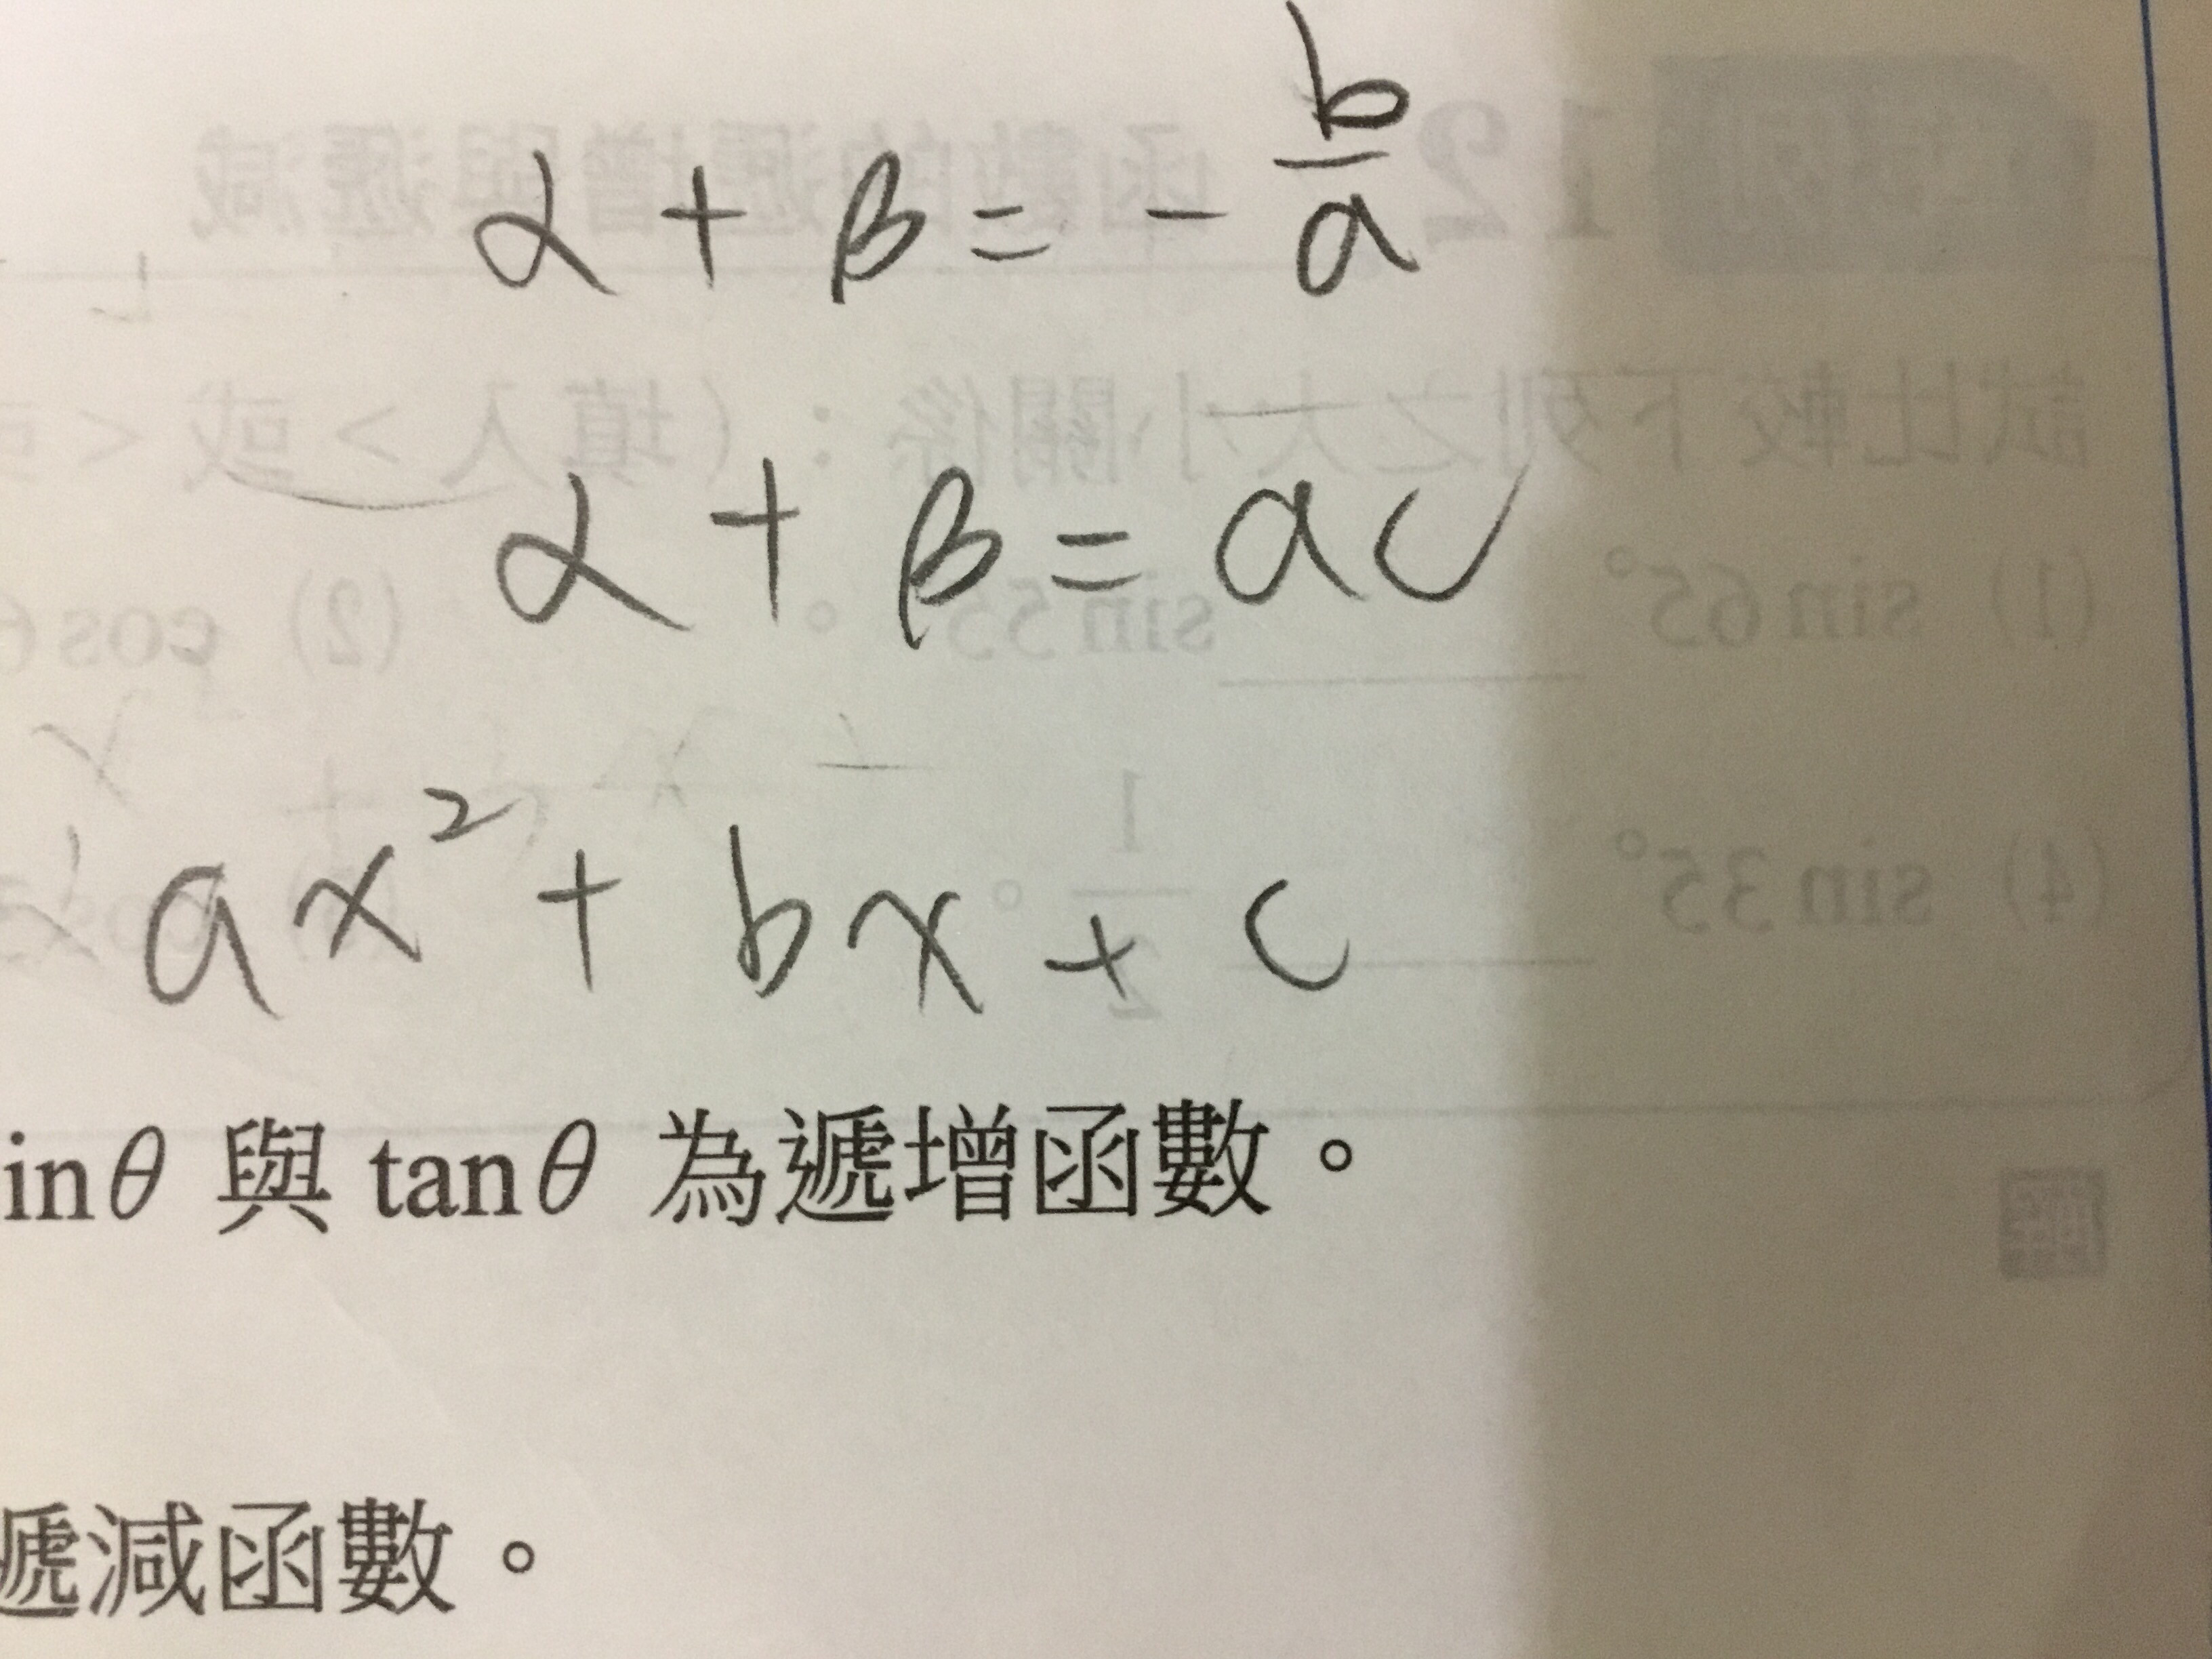 α + β = - b/a
α + β = ac
ax² + bx + c
inθ 與 tanθ 為遞增函數。
遞減函數。